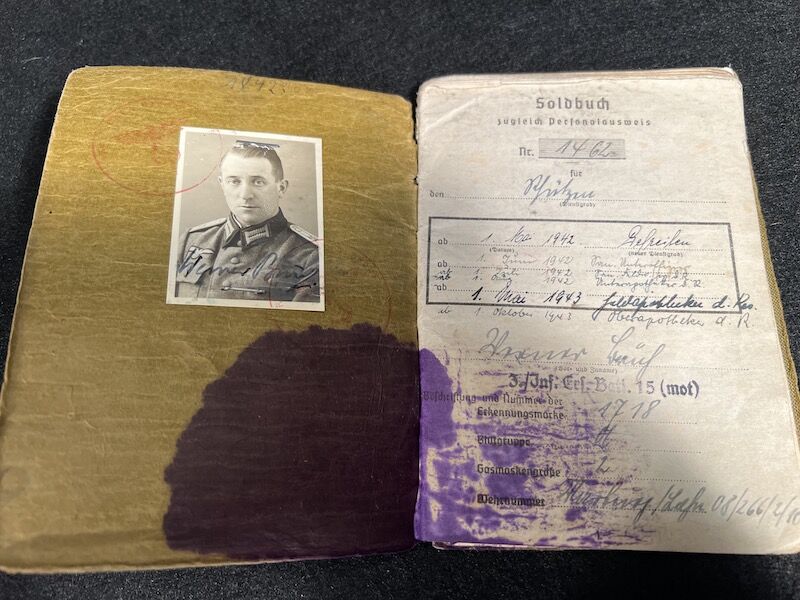 Soldbuch
zugleich Personalausweis
Nr. 1462
für
den Schützen
(Dienstgrad)
ab 1. 1942 Gefreiten
(Datum) (neuer Dienstgrad)
ab 1. Juni 1942 San.
ab 1. Juli 1942
ab 1942 Unterapotheker d. R
ab 1. Mai 1943 Feldapotheker d. Res.
ab 1. Oktober 1943 Oberapotheker d. R
Werner
(Vor- und Zuname)
3./Inf. Ers. Batl. 15 (mot)
Beschriftung und Nummer der
Erkennungsmarke 1718
Blutgruppe
Gasmaskengröße 2
Wehrnummer Marburg/Lahn 08/266/2/